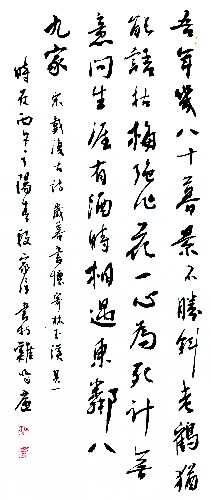 吾年幾八十暮景不勝斜老鶴猶
能語枯梅強作花一心為死計無
意問生涯有酒時相過東鄰八
九家 宋戴復古詩歲暮書懷寄林玉溪其一
時在丙午之陽春段家